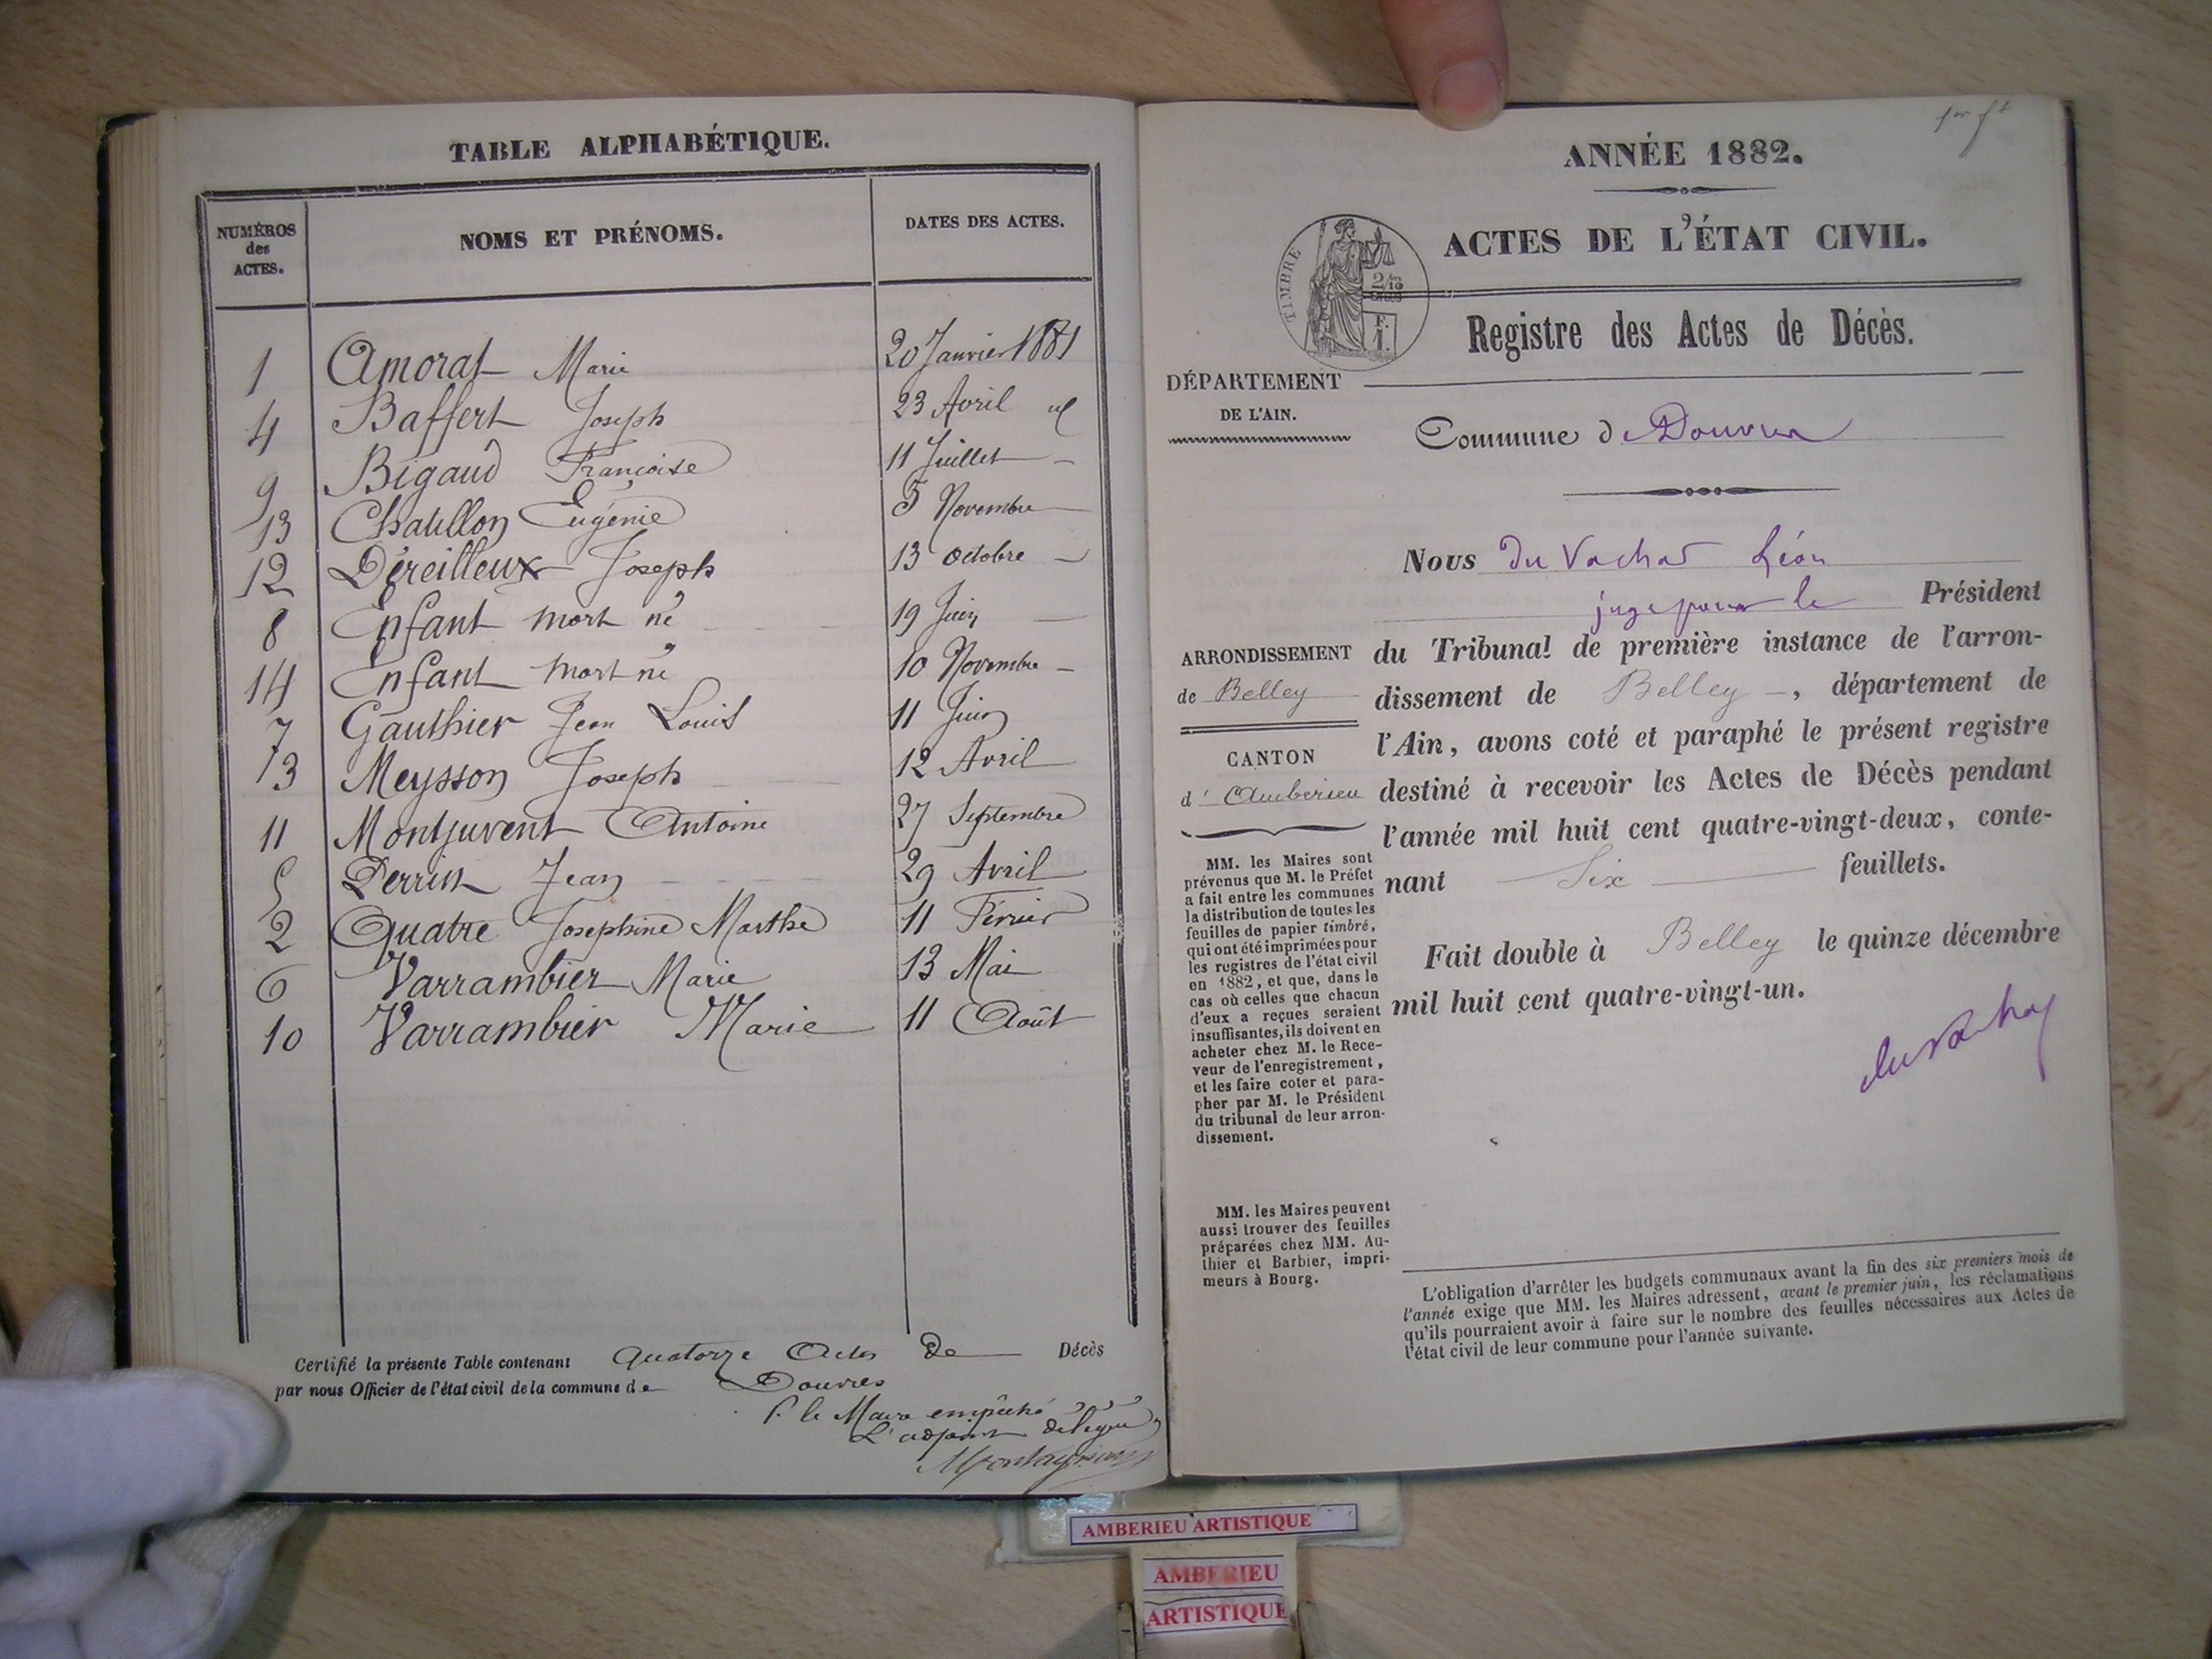 TABLE ALPHABÉTIQUE.
NUMÉROS des ACTES. NOMS ET PRÉNOMS. DATES DES ACTES.
1 Amorat Marie 20 Janvier 1881
4 Baffert Joseph 23 Avril
9 Bigaud Françoise 11 Juillet
13 Chatillon Eugénie 5 Novembre
12 Déreilleux Joseph 13 Octobre
8 Enfant mort né 19 Juin
14 Enfant mort né 10 Novembre
7 Gauthier Jean Louis 11 Juin
3 Meysson Joseph 12 Avril
11 Montjuvent Antoine 27 Septembre
5 Perrin Jean 29 Avril
2 Quatre Josephine Marthe 11 Février
6 Varrambier Marie 13 Mai
10 Varrambier Marie 11 Août
Certifié la présente Table contenant Quatorze Actes de Décès
par nous Officier de l'état civil de la commune de Douvres
P. le Maire empêché
L'adjoint délégué
ANNÉE 1882.
ACTES DE L'ÉTAT CIVIL.
TIMBRE
2/10
EN SUS
F.
1.
Registre des Actes de Décès.
DÉPARTEMENT
DE L'AIN.
Commune de Douvres
Nous Du Vachat Léon
juge pour le Président
du Tribunal de première instance de l'arron-
dissement de Belley, département de
l'Ain, avons coté et paraphé le présent registre
destiné à recevoir les Actes de Décès pendant
l'année mil huit cent quatre-vingt-deux, conte-
nant Six feuillets.
Fait double à Belley le quinze décembre
mil huit cent quatre-vingt-un.
du Vachat
ARRONDISSEMENT
de Belley
CANTON
d'Ambérieu
MM. les Maires sont
prévenus que M. le Préfet
a fait entre les communes
la distribution de toutes les
feuilles de papier timbré,
qui ont été imprimées pour
les registres de l'état civil
en 1882, et que, dans le
cas où celles que chacun
d'eux a reçues seraient
insuffisantes, ils doivent en
acheter chez M. le Rece-
veur de l'enregistrement,
et les faire coter et para-
pher par M. le Président
du tribunal de leur arron-
dissement.
MM. les Maires peuvent
aussi trouver des feuilles
préparées chez MM. Au-
thier et Barbier, impri-
meurs à Bourg.
L'obligation d'arrêter les budgets communaux avant la fin des six premiers mois de
l'année exige que MM. les Maires adressent, avant le premier juin, les réclamations
qu'ils pourraient avoir à faire sur le nombre des feuilles nécessaires aux Actes de
l'état civil de leur commune pour l'année suivante.
AMBERIEU ARTISTIQUE
AMBERIEU
ARTISTIQUE